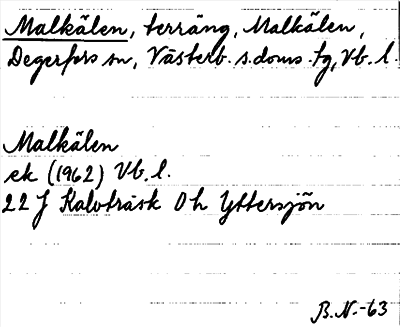 Malkälen, terräng, Malkälen,
Degerfors sn, Västerb. s. doms. tg, Vb. l.
Malkälen
ek (1962) Vb. l.
22 J Kalvträsk 0h Yttersjön
B.N.-63